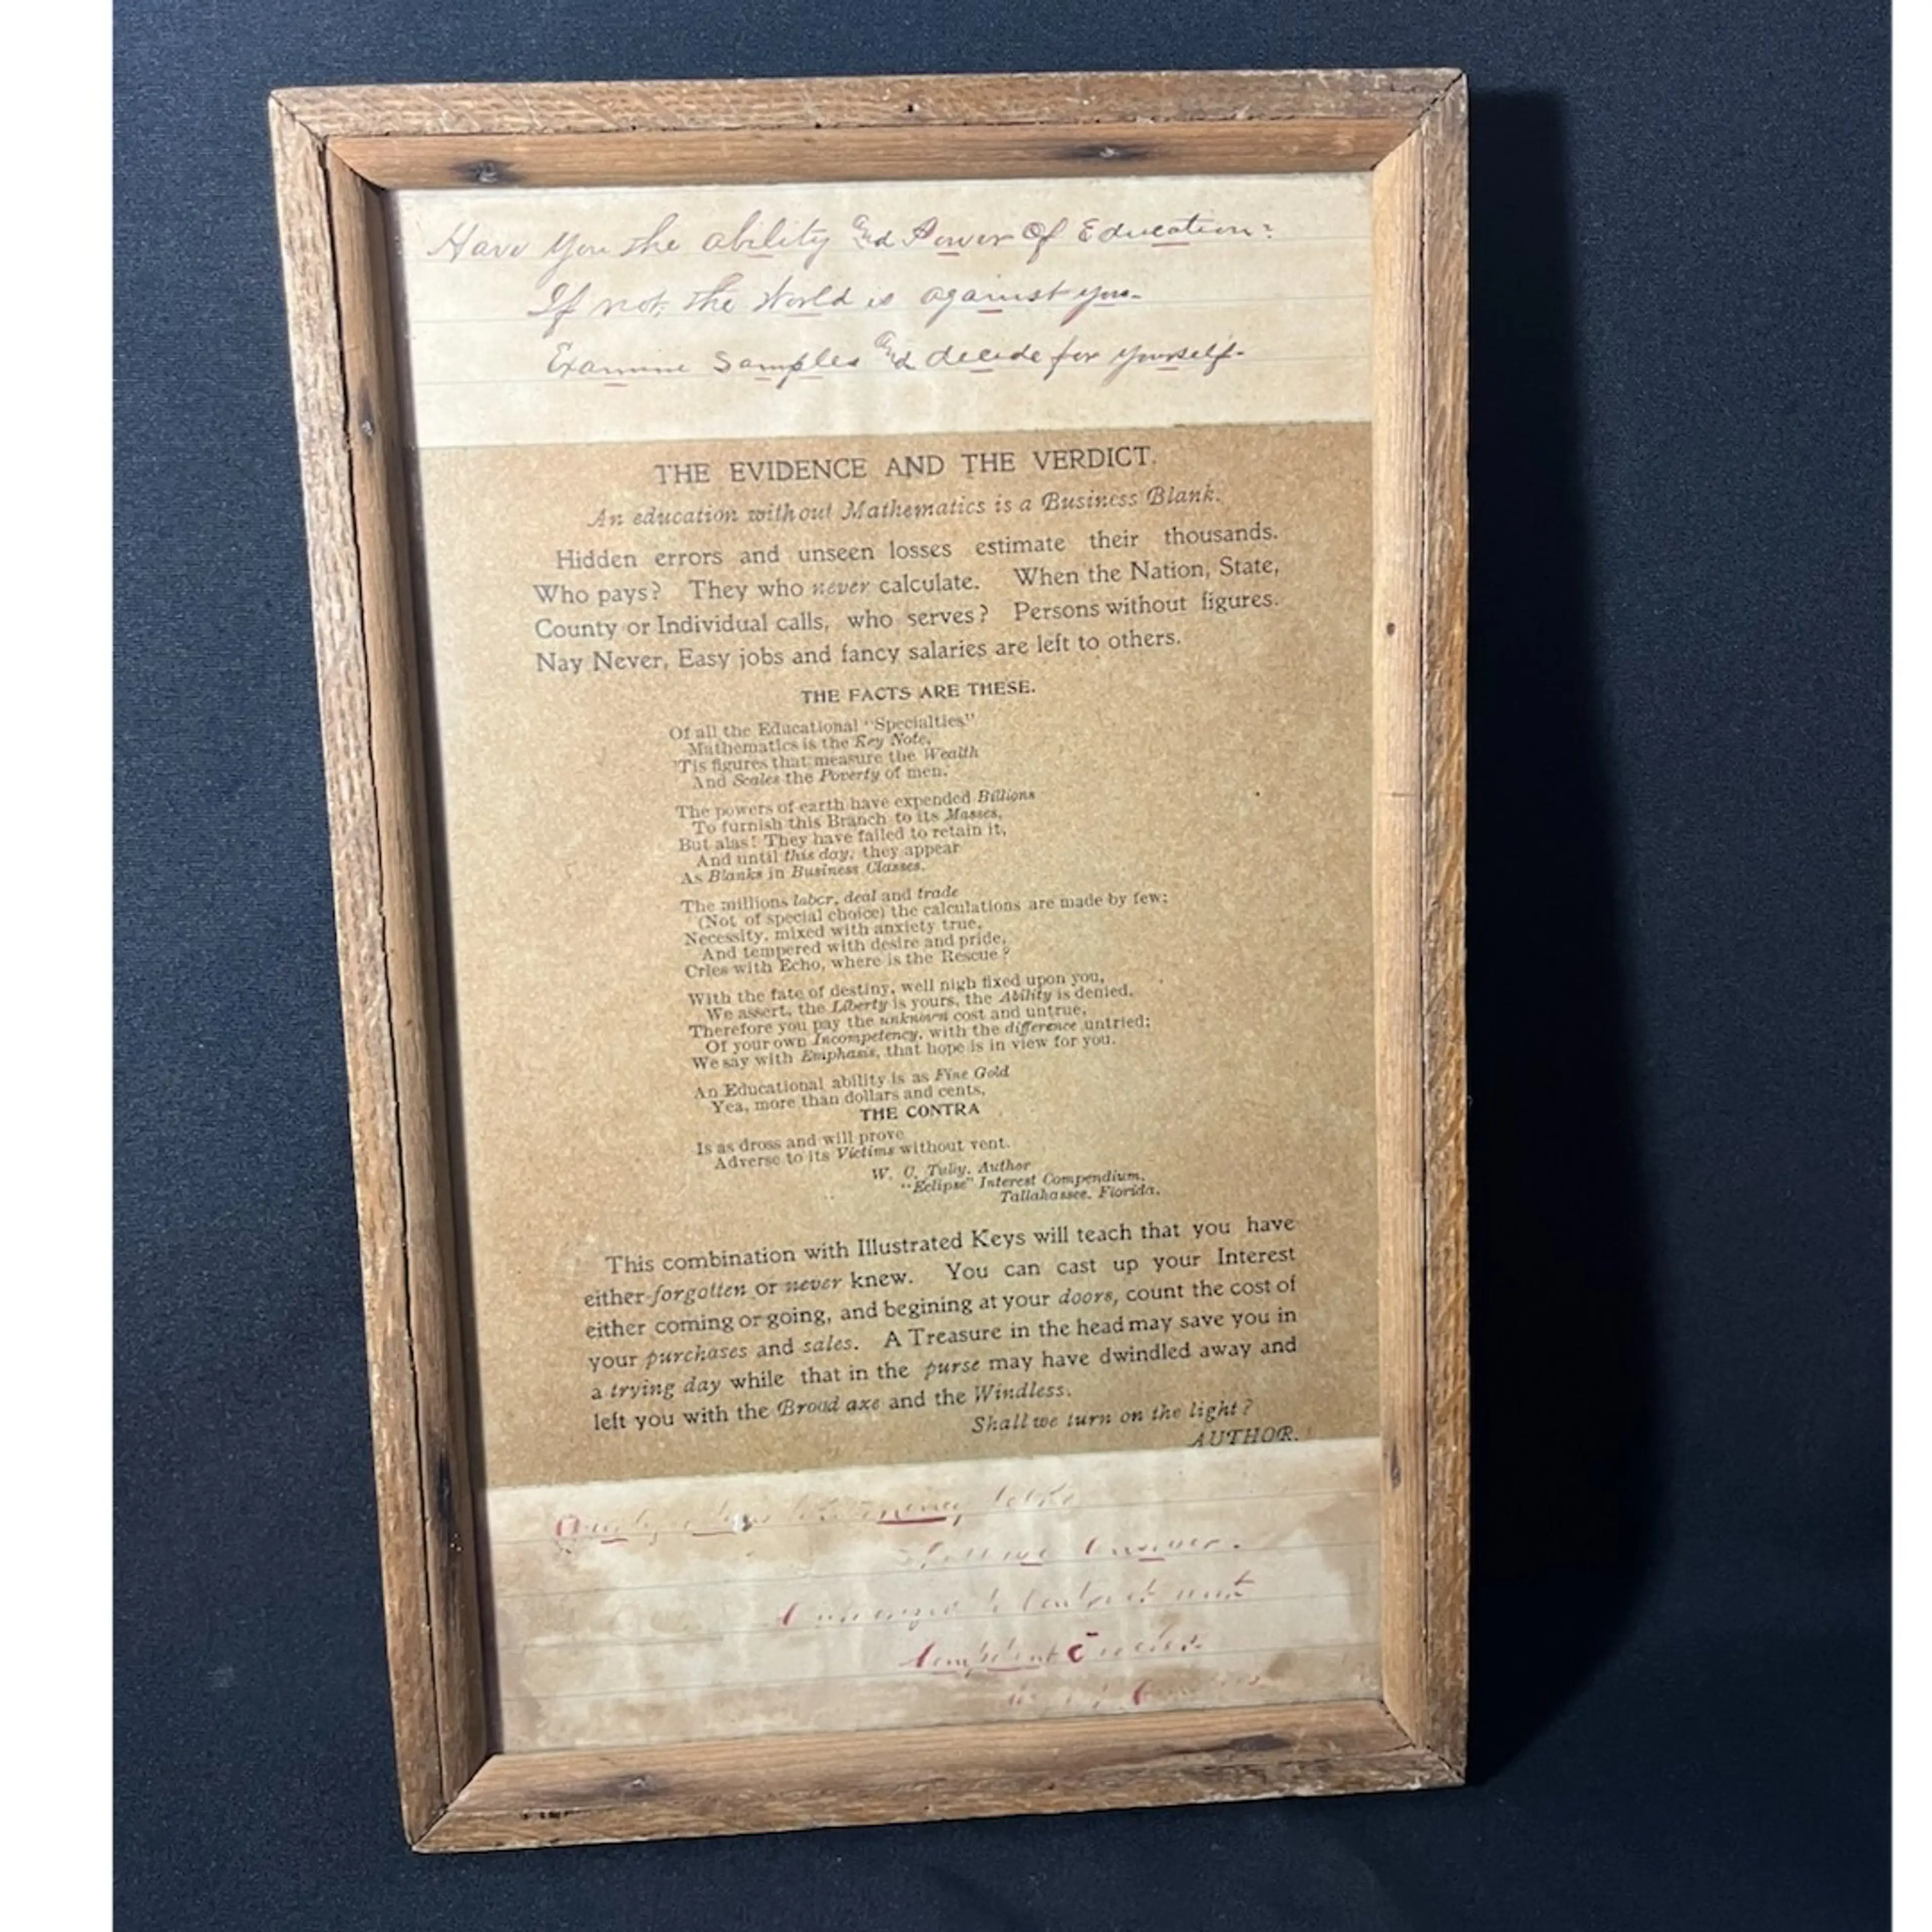 Have You the ability and Power Of Education?
If not, the World is against you-
Examine Samples and decide for yourself-
THE EVIDENCE AND THE VERDICT.
An education without Mathematics is a Business Blank.
Hidden errors and unseen losses estimate their thousands.
Who pays? They who never calculate. When the Nation, State,
County or Individual calls, who serves? Persons without figures.
Nay Never, Easy jobs and fancy salaries are left to others.
THE FACTS ARE THESE.
Of all the Educational "Specialties"
Mathematics is the Key Note,
'Tis figures that measure the Wealth
And Scales the Poverty of men.
The powers of earth have expended Billions
To furnish this Branch to its Masses,
But alas! They have failed to retain it,
And until this day, they appear
As Blanks in Business Classes.
The millions labor, deal and trade
(Not of special choice) the calculations are made by few;
Necessity, mixed with anxiety true,
And tempered with desire and pride,
Cries with Echo, where is the Rescue?
With the fate of destiny, well nigh fixed upon you,
We assert, the Liberty is yours, the Ability is denied,
Therefore you pay the unknown cost and untrue,
Of your own Incompetency, with the difference untried;
We say with Emphasis, that hope is in view for you.
An Educational ability is as Fine Gold
Yea, more than dollars and cents,
THE CONTRA
Is as dross and will prove
Adverse to its Victims without vent.
W. C. Tully, Author
"Eclipse" Interest Compendium,
Tallahassee, Florida.
This combination with Illustrated Keys will teach that you have
either forgotten or never knew. You can cast up your Interest
either coming or going, and begining at your doors, count the cost of
your purchases and sales. A Treasure in the head may save you in
a trying day while that in the purse may have dwindled away and
left you with the Broad axe and the Windless.
Shall we turn on the light?
AUTHOR.